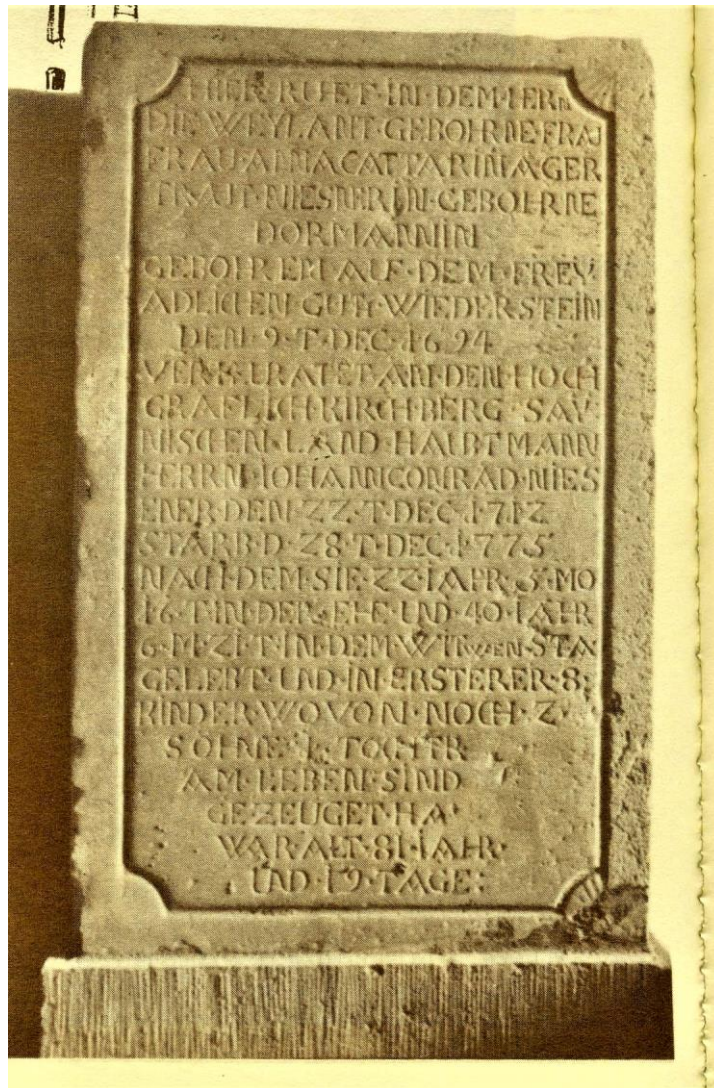 HIER·RUET·IN·DEM·HERN
DIE·WEYLANT·GEBOHRNE·FRAU
FRAU·ANNA CATTARINA GER
TRAUT·NIESNERIN·GEBOHRNE
DORMANNIN
GEBOHREN AUF·DEM·FREY
ADLICHEN·GUTH·WIEDERSTEIN
DEN·9·T·DEC·1694
VERHEURATET AN·DEN·HOCH
GRAFLICH·KIRCHBERG·SAY
NISCHEN·LAND·HAUBTMANN
HERRN·IOHANN CONRAD·NIES
ENER·DEN·22·T·DEC·1712
STARB·D·28·T·DEC·1775
NACH·DEM·SIE·22·IAHR·5·MO
16·T·IN·DER·EHE·UND·40·IAHR
6·M·21·T·IN·DEM·WITWEN·STA
GELEBT·UND·IN·ERSTERER·8:
KINDER·WOVON·NOCH·2·
SÖHNE·1·TOCHTR
AM·LEBEN·SIND
GEZEUGET·HA
WAR·ALT·81·IAHR·
UND·19·TAGE: